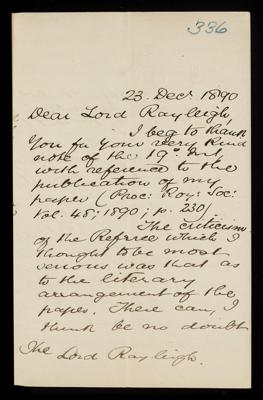 336
23. Decr 1890
Dear Lord Rayleigh,
I beg to thank
you for your very kind
note of the 19th. inst,
with reference to the
publication of my
paper (Proc: Roy: Soc:
Vol. 48; 1890; p. 230)
The criticism
of the Referee which I
thought to be most
serious was that as
to the literary
arrangement of the
paper. There can, I
think be no doubt
The Lord Rayleigh.